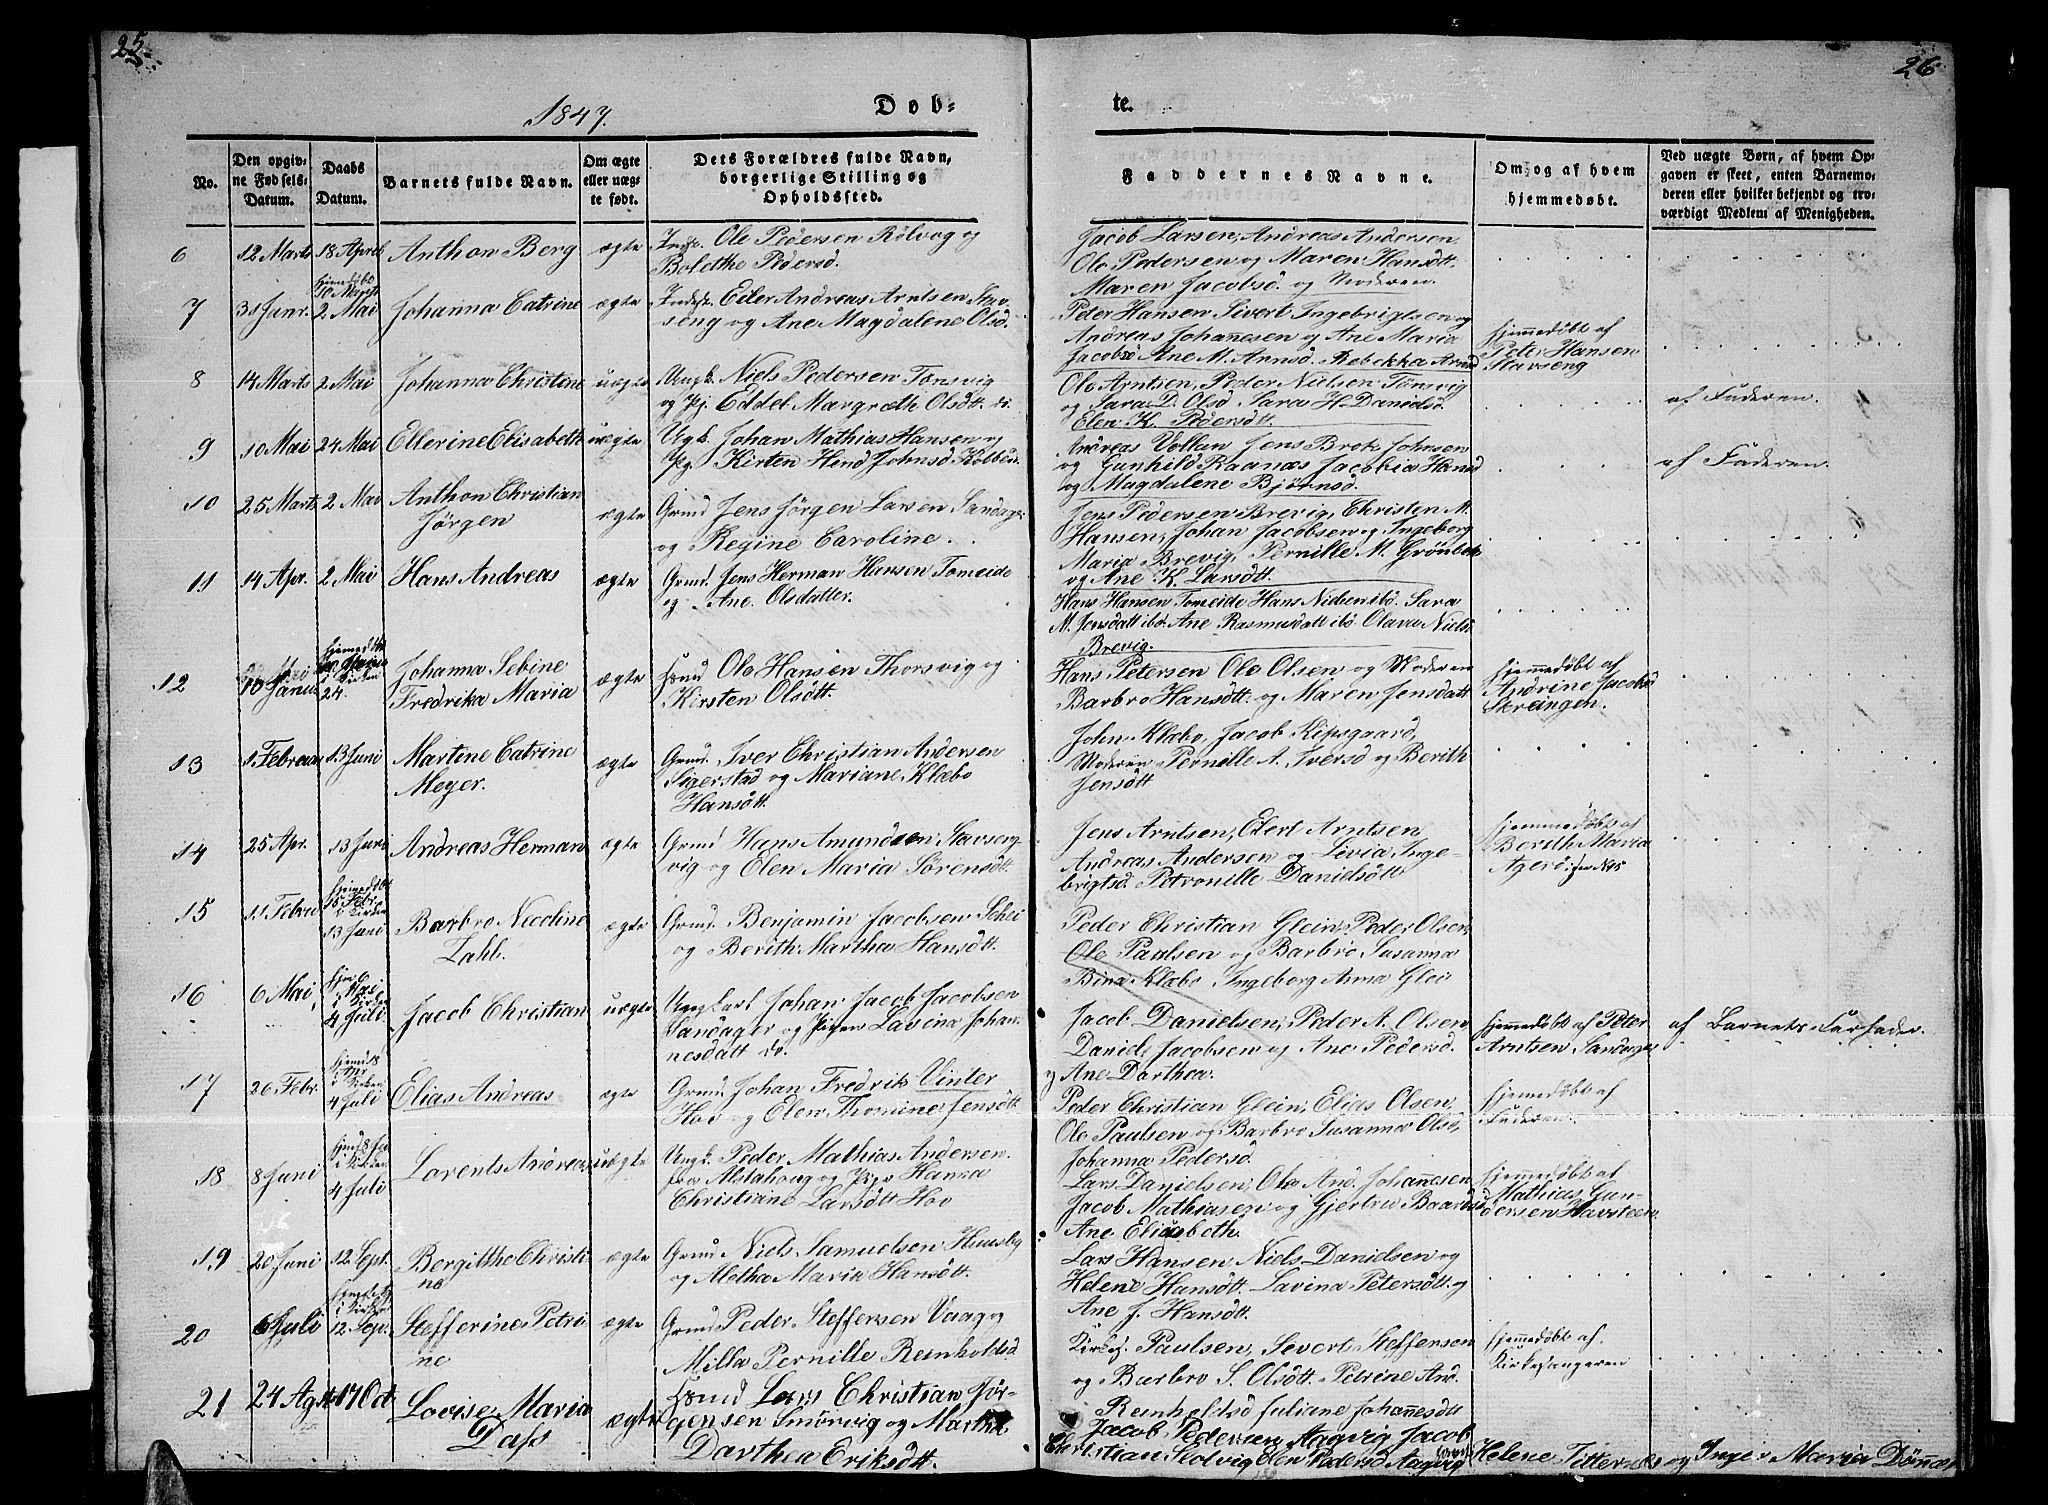 25.
26
1847.
Dob=
te.
No.
Den opgiv-
ne Fødsels-
Datum.
Daabs
Datum.
Barnets fulde Navn.
Om ægte
eller uæg-
te født.
Dets Forældres fulde Navn,
borgerlige Stilling og
Opholdssted.
Faddernes Navne.
Om, og af hvem
hjemmedøbt.
Ved uægte Børn, af hvem Op-
gaven er skeet, enten Barnemo-
deren eller hvilket bekjendt og tro-
værdigt Medlem af Menigheden.
6
12 Marts
18 April
Anthon Berg
ægte
Ole Pedersen Rölvog og
Bolethe Pedersd.
Jacob Larsen, Andreas Andersen
Ole Pedersen og Maren Hansdtt.
Maren Jacobsd. og Moderen.
7
31 Janr.
hjemedöbt
10 Marts
2 Mai
Johanna Catrine
ægte
Eiler Andreas Arntsen Stav-
seng og Ane Magdalene Olsd.
Peter Hansen Sivert Ingebrigtsen og
Andreas Johannesen og Ane Maria
Jacobsd Ane M. Arnsd. Rebekka Arnsd
hjemmedöbt af
Peter Hansen
Stavseng
8
14 Marts
2 Mai
Johanna Christine
uægte
Ungk. Niels Pedersen Tonsvig
og Pj. Eddel Margreth Olsdtt. do.
Ole Arntsen, Peder Nielsen Tonsvig
og Sara D. Olsd Sara H. Danielsd.
Elen K. Pedersdtt.
af Faderen.
9
10 Mai
24 Mai
Ellerine Elisabeth
uægte
Ugk. Johan Mathias Hansen og
Pg. Kirten Hend Johnsd.
Andreas Vollan Jens Brok Johnsen
og Gunhild Raanæs Jacobia Hansd
og Magdalene Bjørnsd.
af Faderen.
10
25 Marts
2 Mai
Anthon Christian
Jörgen
ægte
Grmd Jens Jörgen Larsen Sandager
og Regine Caroline.
Jens Pedersen Brevig, Christen M.
Hansen, Johan Jacobsen og Ingeborg
Maria Brevig, Pernille M. Grönbek
og Ane K. Larsdtt.
11
14 Apr.
2 Mai
Hans Andreas
ægte
Grmd. Jens Herman Hansen Tomeide
og Ane Olsdatter.
Hans Hansen Tomeide Hans Nielsen ibd. Sara
M. Jensdatt ibd. Ane Rasmusdatt ibd. Olava Niels
Brevig.
12
10 Janu
24.
Johanna Sebine
Fredrika Maria
ægte
Hmd Ole Hansen Thorsvig og
Kirsten Olsdtt.
Hans Petersen Ole Olsen og Moderen
Barbro Hansdtt. og Maren Jensdatt
hjemmedöbt af
Andrine Jacobsd
Skreingen.
13
1 Februar
13 Juni
Martene Catrine
Meyer.
ægte
Grmd. Iver Christian Andersen
Sigerstad og Mariane Klæbo
Hansdtt.
John Klæbo, Jacob Kipsgaard,
Moderen Pernille A. Iversd og Berith
Jensdtt
14
25 Apr.
13 Juni
Andreas Herman
ægte
Grmd Hans Amundsen Stavseng-
vig og Elen Maria Sörensdtt.
Jens Arntsen, Edert Arntsen,
Andreas Andersen og Livia Inge-
brigtsd. Petronille Danielsdtt
hjemmedöbt af
Berith Maria
15
11 Febru
hjemedöbt
15 Febr.
i Kirken
13 Juni
Barbro Nicoline
Zahl.
ægte
Grmd. Benjamin Jacobsen Schei
og Berith Martha Hansdtt.
Peder Christian Glein, Peder Olsen
Ole Paulsen og Barbro Susanna
Bina Klæbo, Ingeborg Anna Glei
16
6 Mai
hjm 6
Mai
i Kirken
4 Juli
Jacob Christian
uægte
Ungkarl Johan Jacob Jacobsen
Sandager og Pigen Lavina Johan-
nesdatt do.
Jacob Danielsen, Peder A. Olsen
Daniel Jacobsen og Ane Pedersd.
og Ane Dorthea.
hjemmedöbt af Peter
Arntsen Sandager
af Barnets Farfader.
17
26 Febr.
i Kirken
4 Juli
Elias Andreas
ægte
Grmd. Johan Fredrik Vinter
Hov og Elen Thomine Jensdtt.
Peder Christian Glein, Elias Olsen,
Ole Paulsen og Barbro Susanna Olsd,
Johanna Pedersd.
hjemmedöbt af
Faderen.
18
8 Juni
i Kirken
4 Juli
Lorents Andreas
uægte
Ungk. Peder Mathias Andersen
fra Alstahoug og Pige Hanna
Christiane Larsdtt Hov
Lars Danielsen, Ole And. Johannesen
Jacob Mathiasen og Gjertru Baardsd
Ane Elisabeth.
hjemmedöbt af
Mathias Gun-
dersen Havsteen
19
20 Juni
12 Sept.
Bergitthe Christi-
ne
ægte
Grmd Niels Samuelsen Huusby
og Metha Maria Hansdtt.
Lars Hansen Niels Danielsen og
Helene Hansdtt. Lavina Petersdtt. og
Ane J. Hansdtt.
20
6 Juli
i Kirken
12 Sept.
Stefferine Petri-
ne
ægte
Grmd Peder Steffensen Vaag og
Milla Pernille Reinholdsd
Kirkes. Paulsen, Severt Steffensen
og Barbro S. Olsdtt. Petrine And.
Reinholdsd Juliane Johannesdtt
hjemmedöbt af.
Kirkesangeren
21
24 Agst
17 Oct
Lovise Maria
Dass
ægte
Hmd Lars Christian Jör-
gensen Smörvig og Martha
Dorthea Eriksdtt.
Jacob Pedersen Aagvig Jacob
Christian Slotvig Elen Pedersd Aagvig
Helene og Inger Maria Dönnæs